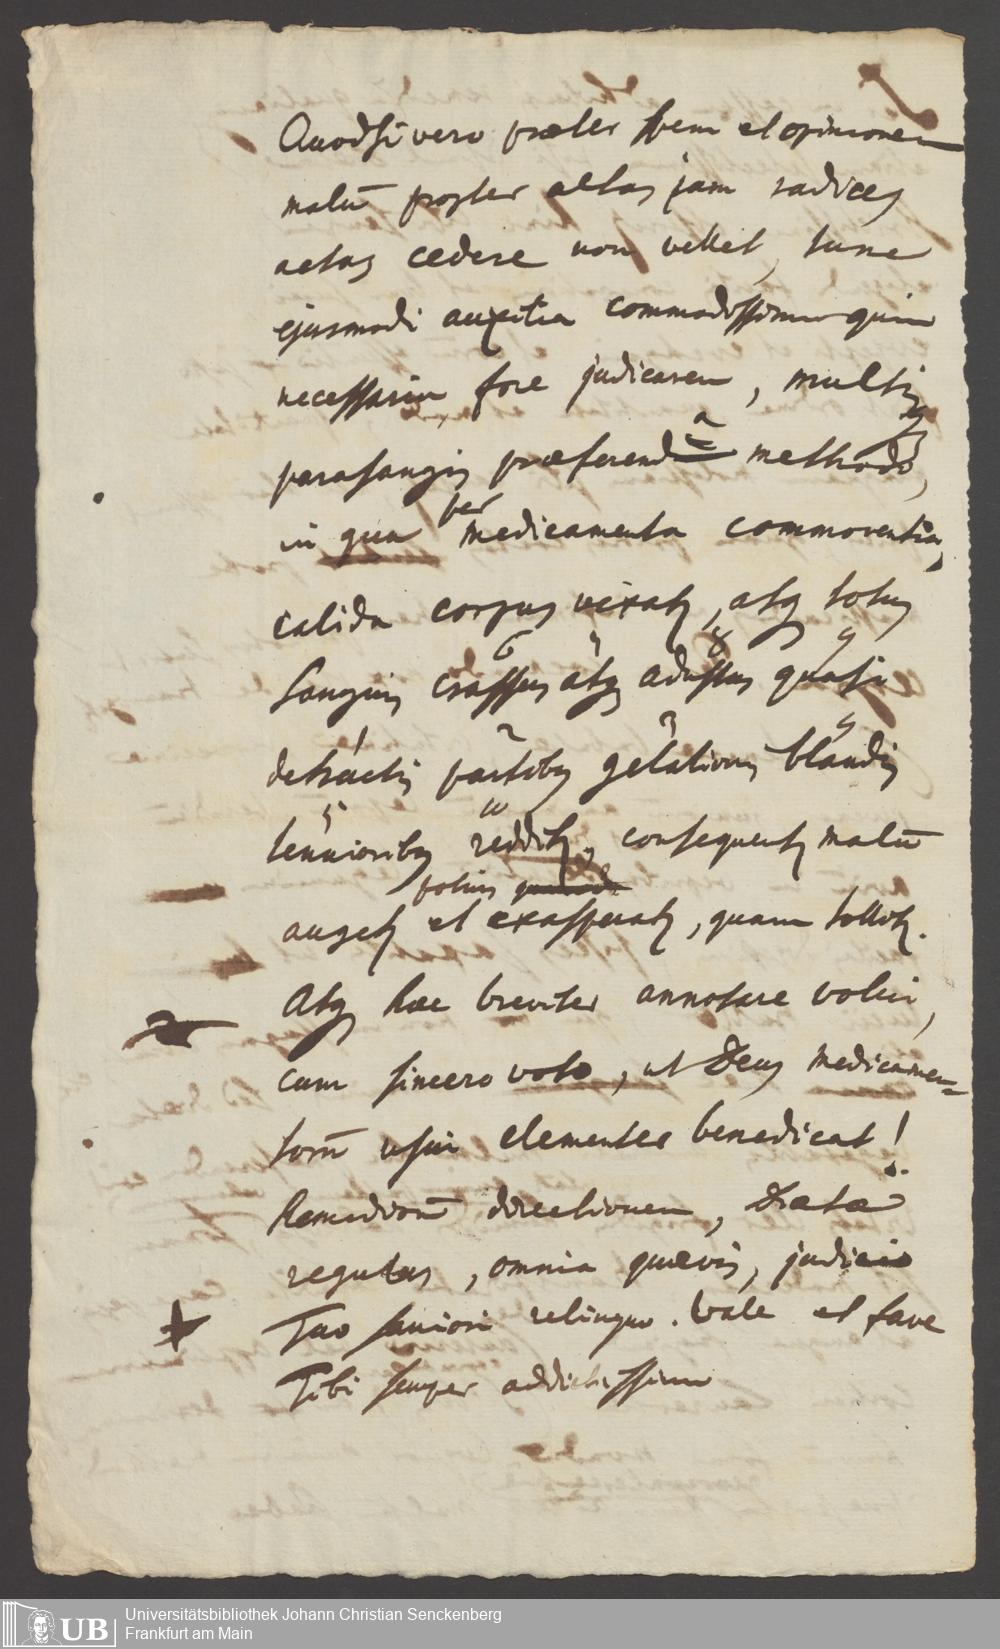 Quodsi vero præter spem et opinionem
malū propter altas jam radices
actas cedere non vellet, tunc
ejusmodi auxilia commodissima quin
necessaria fore judicarem, multis
parasangis præferenda methodo,
in qua per medicamenta commoventia,
calida corpus vexatʒ, atqʒ totus
sanguis crassus atqʒ adustus quasi
detractis partibʒ gelatinosis blandis
tenuioribʒ redditʒ, consequentʒ malū
potius
augetʒ et exasperatʒ, quam tollitʒ.
Atqʒ hæc breviter annotare volui,
cum sincero voto, ut Deus medicamen=
torū usui clementer benedicat!
Remediorū directionem, Diætæ
regulas, omnia quævis, judicio
Tuo saniori relinquo. Vale et fave
Tibi semper addictissimo
Universitätsbibliothek Johann Christian Senckenberg
Frankfurt am Main
UB